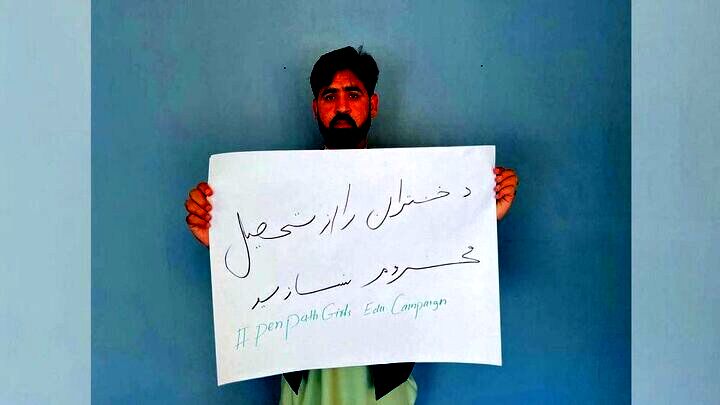 دختران را از تحصیل
محروم نسازید
#penpath Girls Edu Campaign